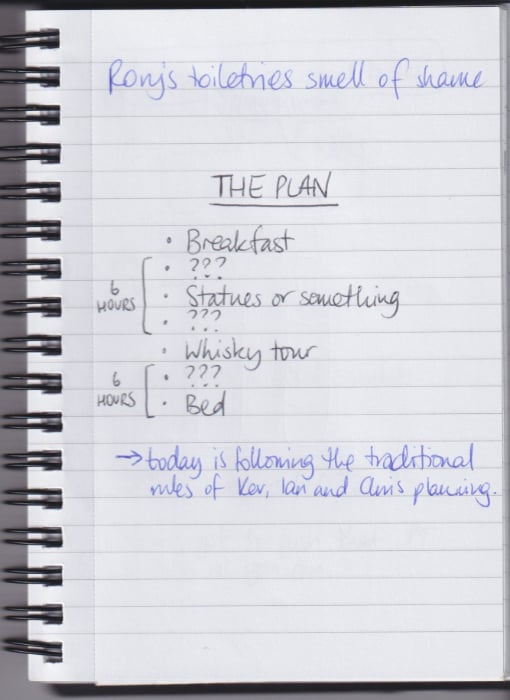 Rory's toiletries smell of shame
THE PLAN
• Breakfast
• ???
• Statues or something
• ???
• Whisky tour
• ???
• Bed
6 HOURS
6 HOURS
→ today is following the traditional
rules of Kev, Ian and Chris planning.